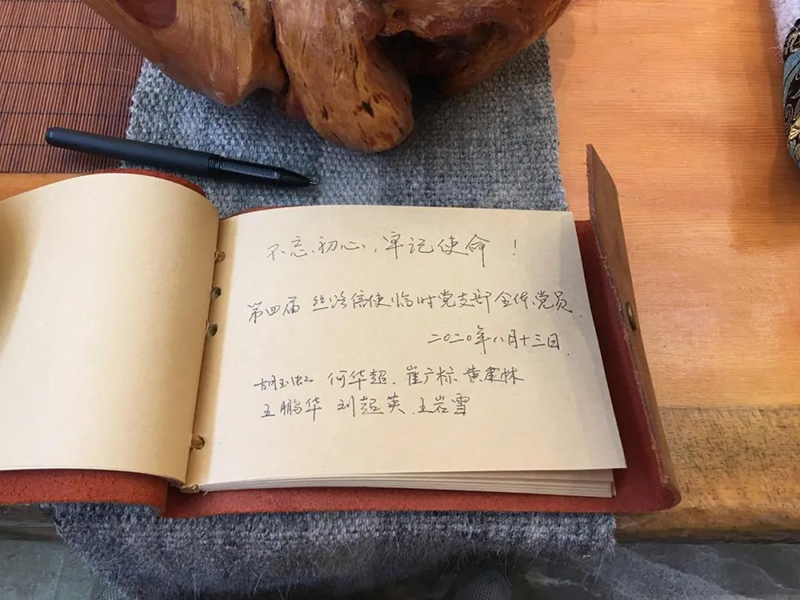 不忘初心,牢记使命!
第四届 丝路信使临时党支部全体党员
二〇二〇年八月十三日.
胡玉虹 何华超.崔广标 黄建林
王鹏华 刘超英.王岩雪